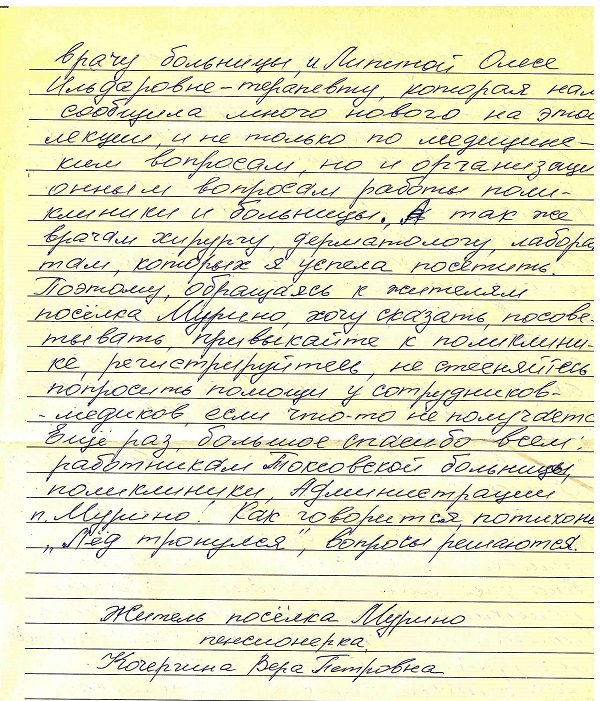 врачу больницы, и Липитой Олесе
Ильдаровне - терапевту, которая нам
сообщила много нового на этой
лекции, и не только по медицинс-
ким вопросам, но и организаци
онным вопросам работы поли-
клиники и больницы. А так же
врачам хирургу, дерматологу, лабора
там, которых я успела посетить.
Поэтому, обращаясь к жителям
посёлка Мурино, хочу сказать, посове-
тывать, привыкайте к поликлини-
ке, регистрируйтесь, не стесняйтесь
попросить помощи у сотрудников-
-медиков, если что-то не получаетс
Ещё раз, большое спасибо всем:
работникам Токсовской больницы,
поликлиники, Администрации
п. Мурино! Как говорится, потихонь
„Лёд тронулся", вопросы решаются.
Житель посёлка Мурино
пенсионерка
Кочергина Вера Петровна